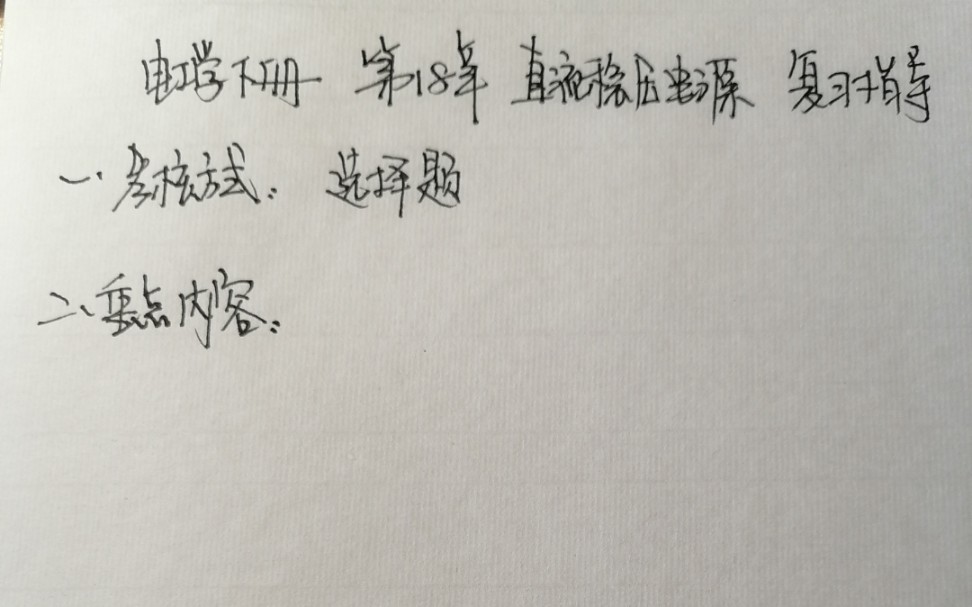 电工学下册 第18章 直流稳压电源 复习指导
一、考核方式：选择题
二、重点内容：